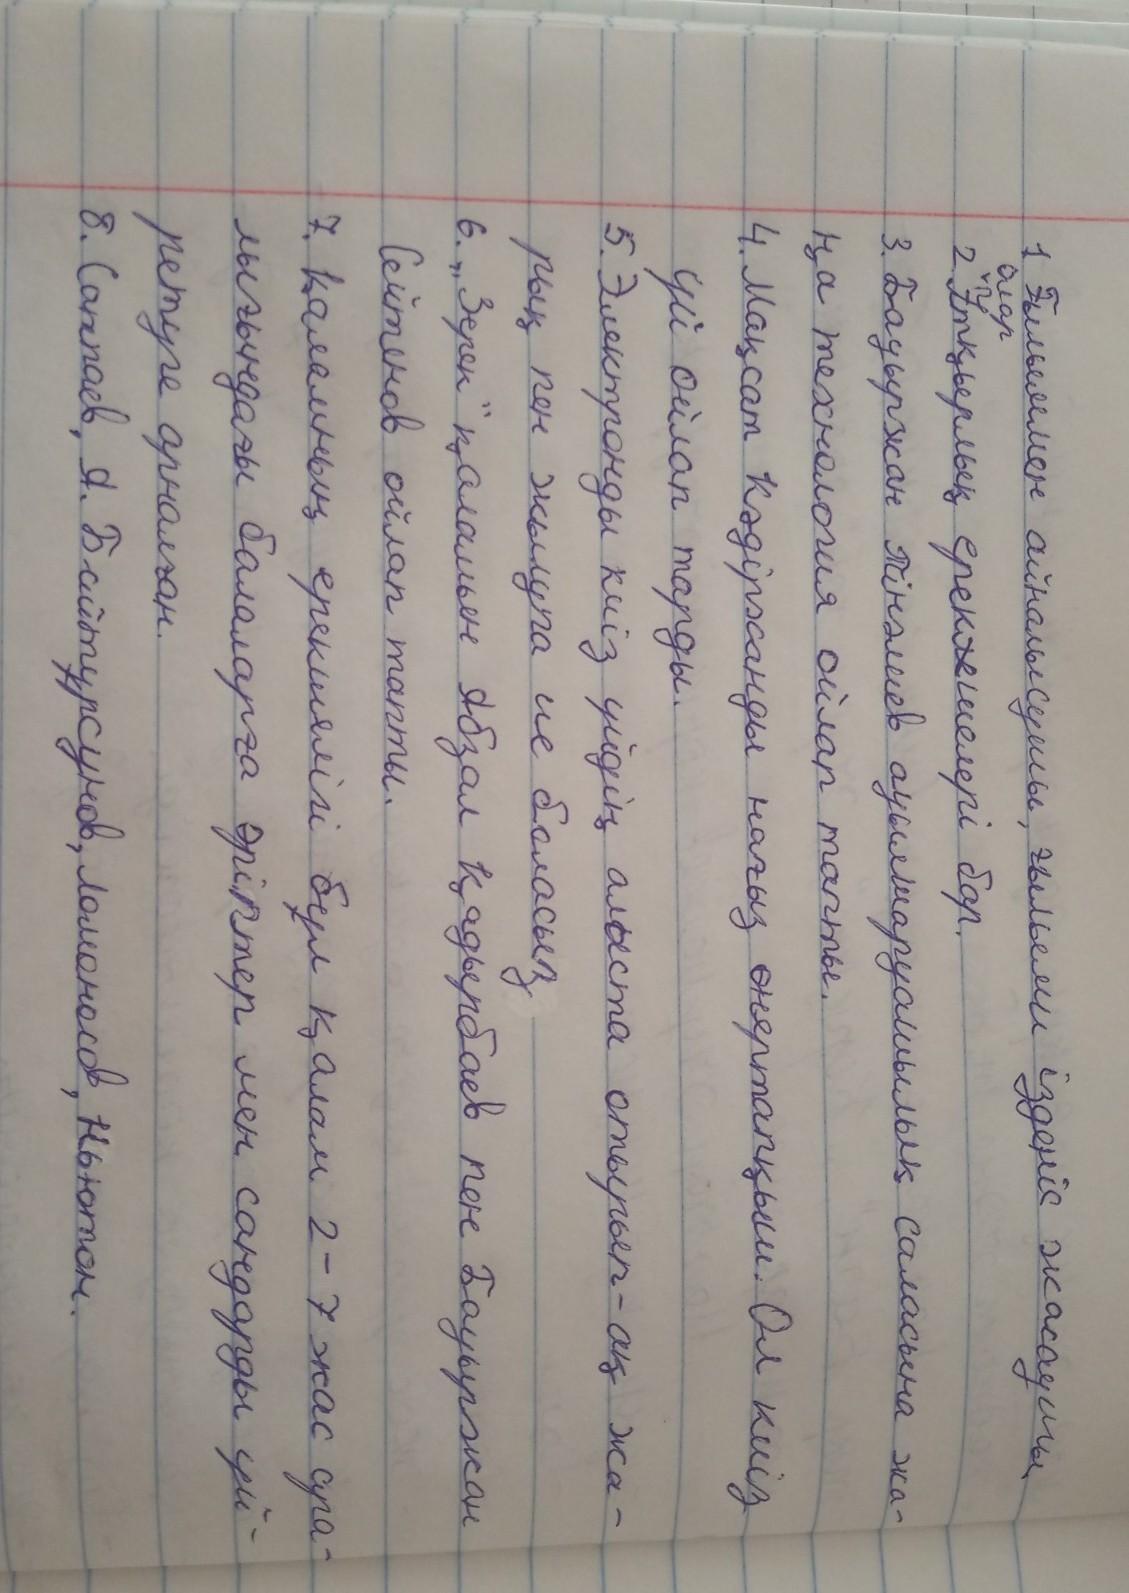 1 Ғылыммен айналысушы, ғылыми ізденіс жасаушы
олар
2. Тапқырлық ерекжшелері бар.
3. Бауыржан Пінәлиев ауылшаруашылық саласына жа-
ңа технология ойлар тапты.
4. Мақсат Кәдіржанды нағыз өнертапқыш. Ол киіз
үй ойлап тарды.
5. Электронды киіз үйдің алыста отырып-ақ жа-
рық пен жылуға ие боласың
6. „Зерек" қаламын Абзал Қадырбаев пен Бауыржан
Сейтенов ойлап тапты.
7. Қаламның ерекшелігі бұл қалам 2-7 жас ара-
лығындағы балаларға әріптер мен сандарды үй-
ретуге арналған.
8. Сатпаев, А. Байтурсунов, Ломоносов, Ньютон.